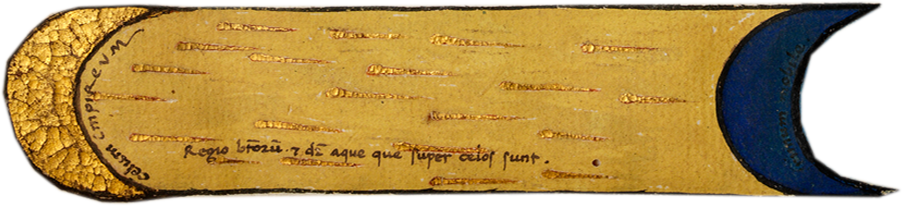 celum empireum
Regio btorũ. ⁊ dr̃ aque que super celos sunt.